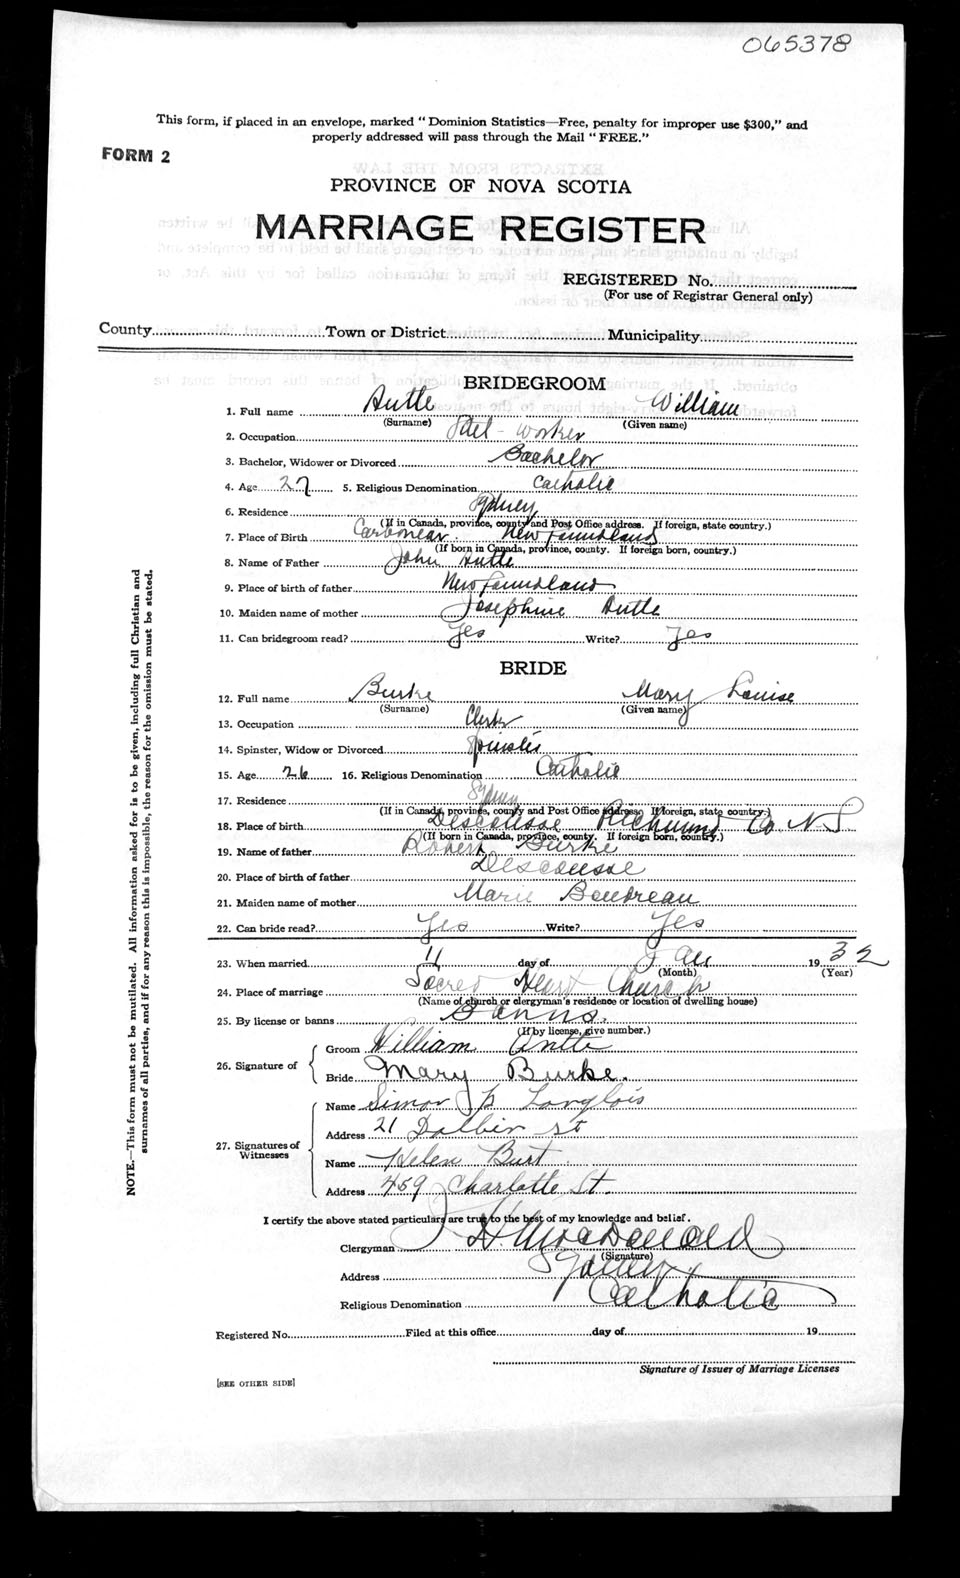 065378
This form, if placed in an envelope, marked "Dominion Statistics—Free, penalty for improper use $300," and
properly addressed will pass through the Mail "FREE."
FORM 2
PROVINCE OF NOVA SCOTIA
MARRIAGE REGISTER
REGISTERED No.
(For use of Registrar General only)
County Town or District Municipality
BRIDEGROOM
1. Full name Antle William
(Surname) (Given name)
2. Occupation Steel-worker
3. Bachelor, Widower or Divorced Bachelor
4. Age 27 5. Religious Denomination Catholic
6. Residence Sydney
(If in Canada, province, county and Post Office address. If foreign, state country.)
7. Place of Birth Carbonear. Newfoundland
(If born in Canada, province, county. If foreign born, country.)
8. Name of Father John Antle
9. Place of birth of father Newfoundland
10. Maiden name of mother Josephine Antle
11. Can bridegroom read? Yes Write? Yes
BRIDE
12. Full name Burke Mary Louise
(Surname) (Given name)
13. Occupation Clerk
14. Spinster, Widow or Divorced Spinster
15. Age 26 16. Religious Denomination Catholic
17. Residence Sydney
(If in Canada, province, county and Post Office address. If foreign, state country.)
18. Place of birth Descousse Richmond Co NS
(If born in Canada, province, county. If foreign born, country.)
19. Name of father Robert Burke
20. Place of birth of father Descousse
21. Maiden name of mother Marie Boudreau
22. Can bride read? Yes Write? Yes
23. When married 11 day of Jan 1932
(Month) (Year)
24. Place of marriage Sacred Heart Church
(Name of church or clergyman's residence or location of dwelling house)
25. By license or banns Banns.
(If by license, give number.)
26. Signature of Groom William Antle
Bride Mary Burke.
27. Signatures of Witnesses
Name Simon P Langlois
Address 21 St
Name Helen Burt
Address 459 Charlotte St.
I certify the above stated particulars are true to the best of my knowledge and belief.
Clergyman MacDonald
(Signature)
Address Sydney
Religious Denomination Catholic
Registered No. Filed at this office day of 19
Signature of Issuer of Marriage Licenses
[SEE OTHER SIDE]
NOTE.—This form must not be mutilated. All information asked for is to be given, including full Christian and
surnames of all parties, and if for any reason this is impossible, the reason for the omission must be stated.